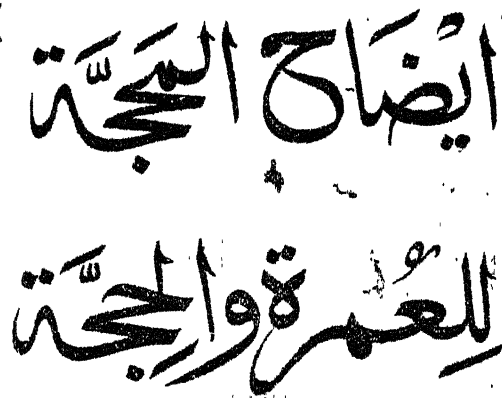 ايْضَاح المَحجَّة
لِلعُمرة والحِجَّة